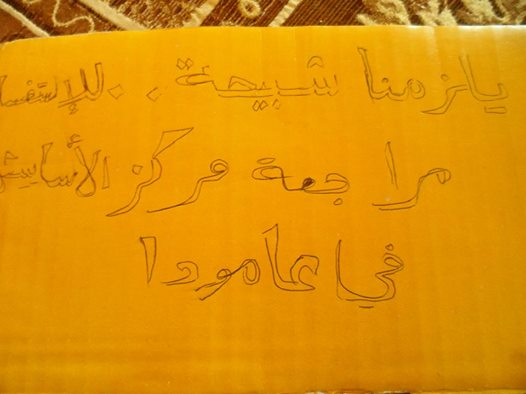 يلزمنا شبيحة . . للإستفسا
مراجعة مركز الأساييش
في عامودا